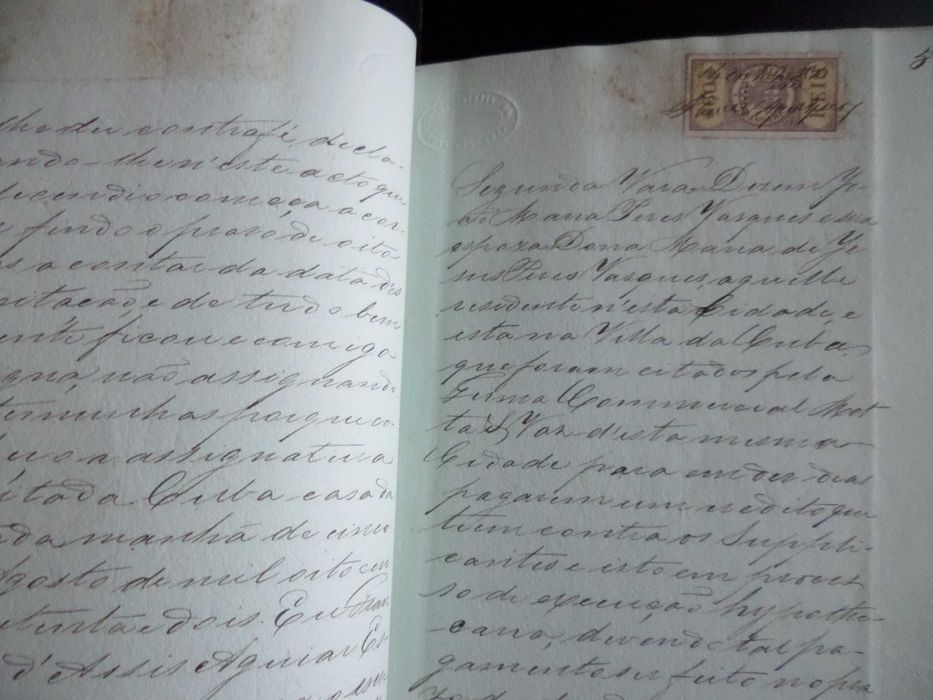 lhe du contrafé, decla-
ando-lhe n'este acto que
decendio começa a cor-
findo o praso de oito
s a contar da data d'es
citação e de tudo bem
ente ficou e comigo
signa, não assignando
temunhas porque co-
a assignatura
citada Cuba casa da
da manhã de cinco
Agosto de mil oito cen
tenta e dois. Eu Fran
d'Assis Aguiar Es-
5
REIS
Segunda Vara. Dizem Jo-
ão Maria Peres Vasques e sua
espoza Dona Maria de Je-
sus Peres Vasques aquelle
residente n'esta Cidade, e
esta na Villa da Cuba,
que foram citados pela
Firma Commercial Mot
ta & Vaz d'esta mesma
Cidade para em dez dias
pagarem um credito que
tem contra os Suppli-
cantes e isto em proces
so de execução hypothe-
caria, devendo tal pa-
gamento ser feito no pra